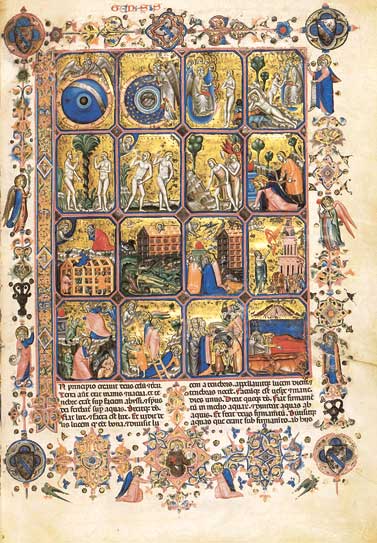 GENESIS
N principio creauit deus celum et terra
Terra autem erat inanis et uacua et te
nebre erant super faciem abyssi et spus
dei ferebat sup aquas Dixitq ds
Fiat lux Et facta e lux Et uidit de
us lucem q eet bona et diuisit lu
cem a tenebris appellauitq lucem diem et
tenebras nocte Factuq est uespe et mane
dies unus Dixit quoq ds Fiat firmamtu
in medio aquar et diuidat aquas ab
aquis Et fecit deus firmamtu Diuisitq
aquas que erant sub firmamto ab hiis